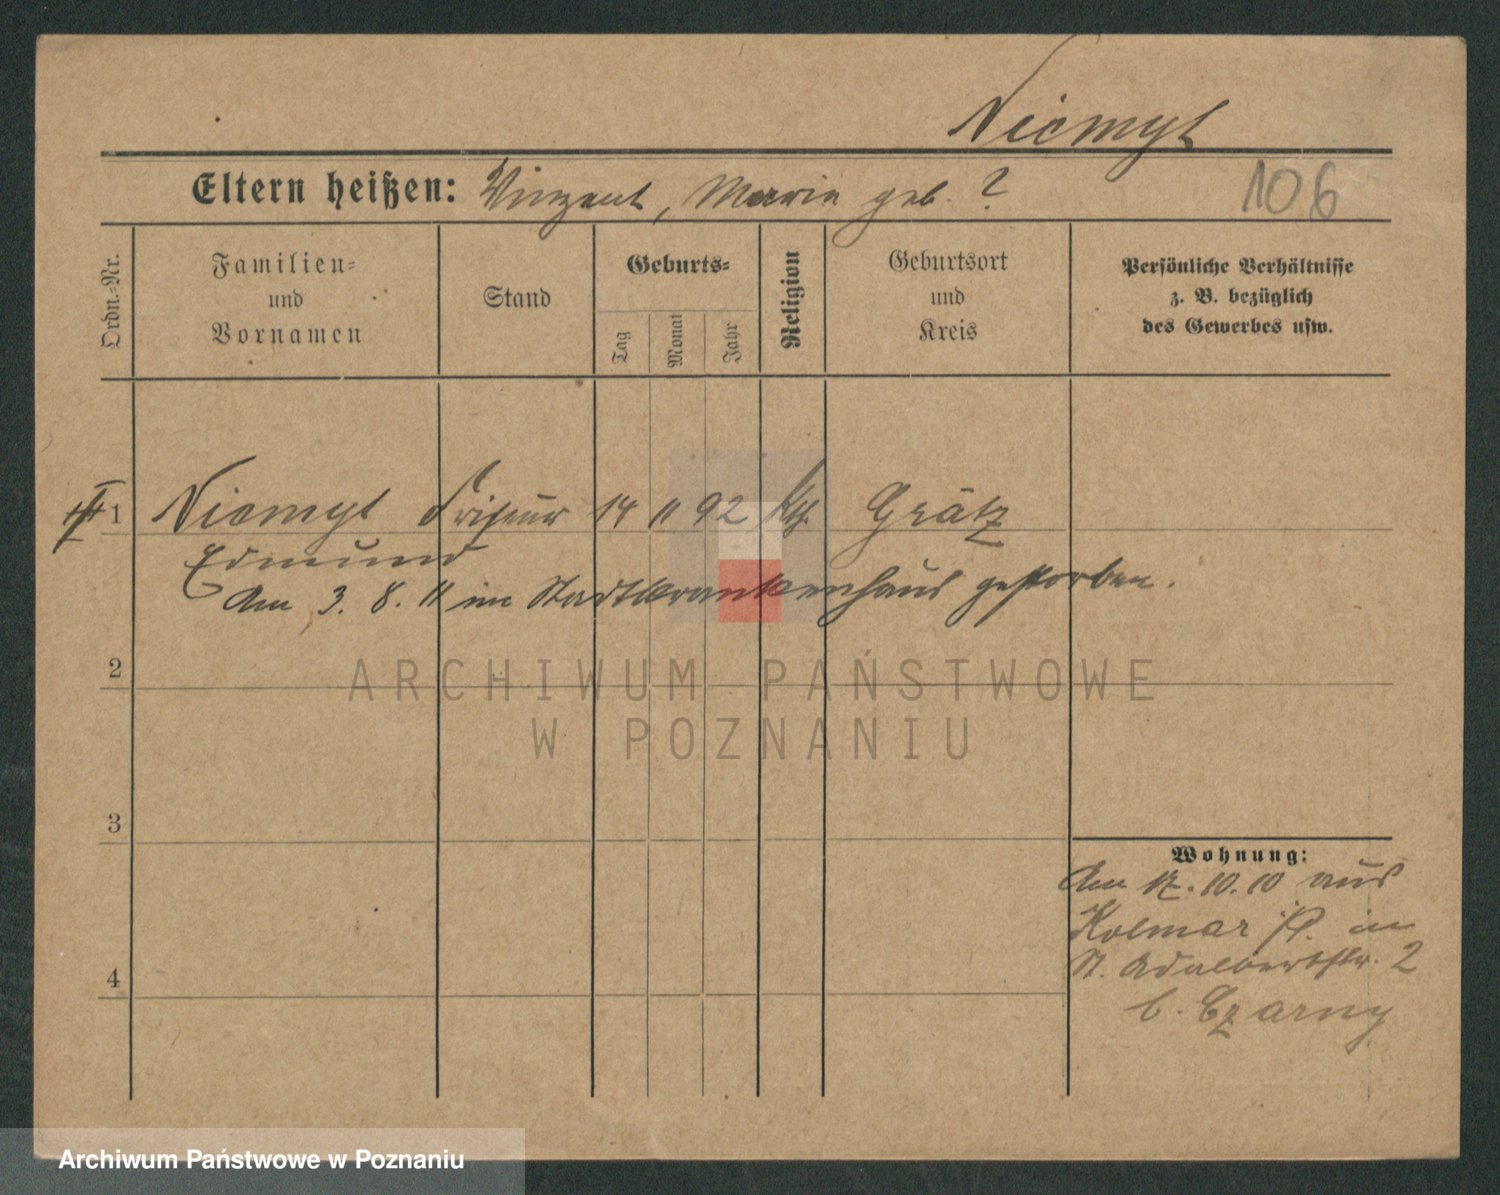 Niemyt
Eltern heißen: Vinzent, Marie geb. ?
106
Ordn.-Nr.
Familien-
und
Vornamen
Stand
Geburts-
Tag
Monat
Jahr
Religion
Geburtsort
und
Kreis
Persönliche Verhältnisse
z. B. bezüglich
des Gewerbes usw.
1 Niemyt Friseur 14 11 92 kth. Grätz
Edmund
Am 3. 8. 11 im Stadtkrankenhaus gestorben.
2
ARCHIWUM PAŃSTWOWE
W POZNANIU
3
4
Wohnung:
Am 12. 10. 10 aus
Kolmar /P. in
St. Adalbertstr. 2
b. Czarny
Archiwum Państwowe w Poznaniu